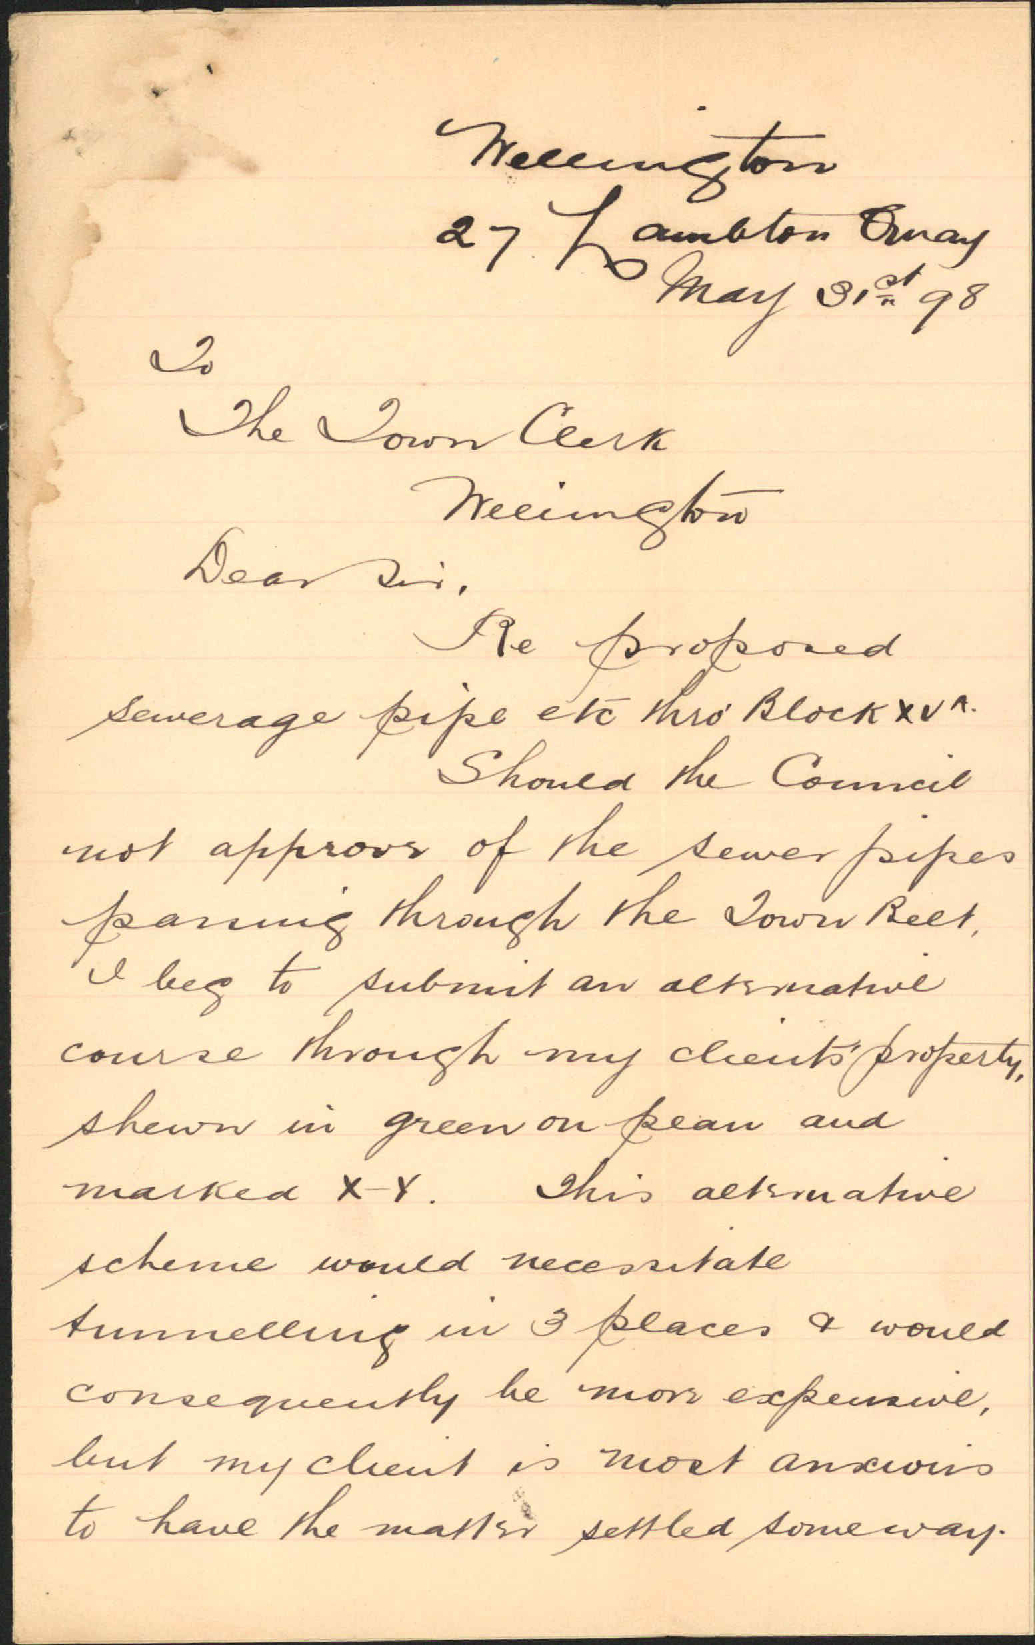 Wellington
27 Lambton Quay
May 31st 98
To
The Town Clerk
Wellington
Dear Sir,
Re proposed
sewerage pipe etc thro' Block XVA.
Should the Council
not approve of the sewer pipes
passing through the Town Belt,
I beg to submit an alternative
course through my clients' property,
shewn in green on plan and
marked X-Y. This alternative
scheme would necessitate
tunnelling in 3 places & would
consequently be more expensive,
but my client is most anxious
to have the matter settled someway.